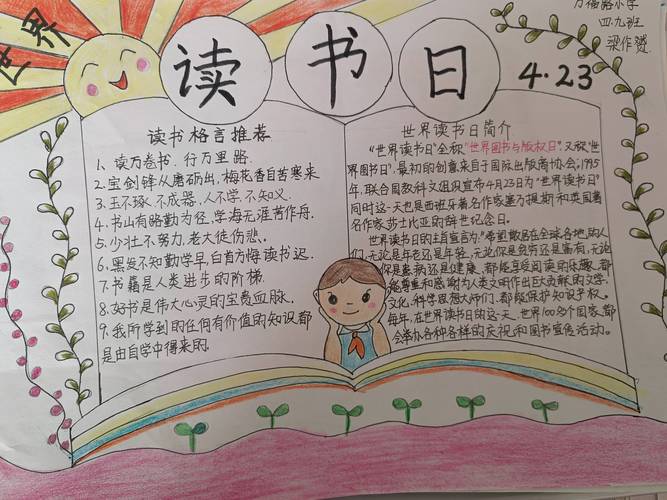 世界
读书日
4·23
万福路小学
四.九班
梁作赟
读书格言推荐
1、读万卷书.行万里路.
2.宝剑锋从磨砺出,梅花香自苦寒来
3.玉不琢.不成器.人不学.不知义.
4.书山有路勤为径,学海无涯苦作舟.
5.少壮不努力.老大徒伤悲.
6.黑发不知勤学早,白首方悔读书迟.
7.书籍是人类进步的阶梯.
8.好书是伟大心灵的宝贵血脉.
9.我所学到的任何有价值的知识都
是由自学中得来的.
世界读书日简介
"世界读书日"全称"世界图书与版权日".又称"世
界图书日".最初的创意来自于国际出版商协会.1995
年,联合国教科文组织宣布4月23日为"世界读书日"
同时这一天也是西班牙著名作家塞万提斯和英国著
名作家莎士比亚的辞世纪念日.
世界读书日的主旨宣言为"希望散居在全球各地的人
们,无论是年老还是年轻,无论你是贫穷还是富有,无论
你是患病还是健康,都能享受阅读的乐趣,都
能尊重和感谢为人类文明作出巨大贡献的文学,
文化,科学思想大师们,都能保护知识产权.
每年,在世界读书日的这一天,世界100多个国家,都
会举办各种各样的庆祝和图书宣传活动.